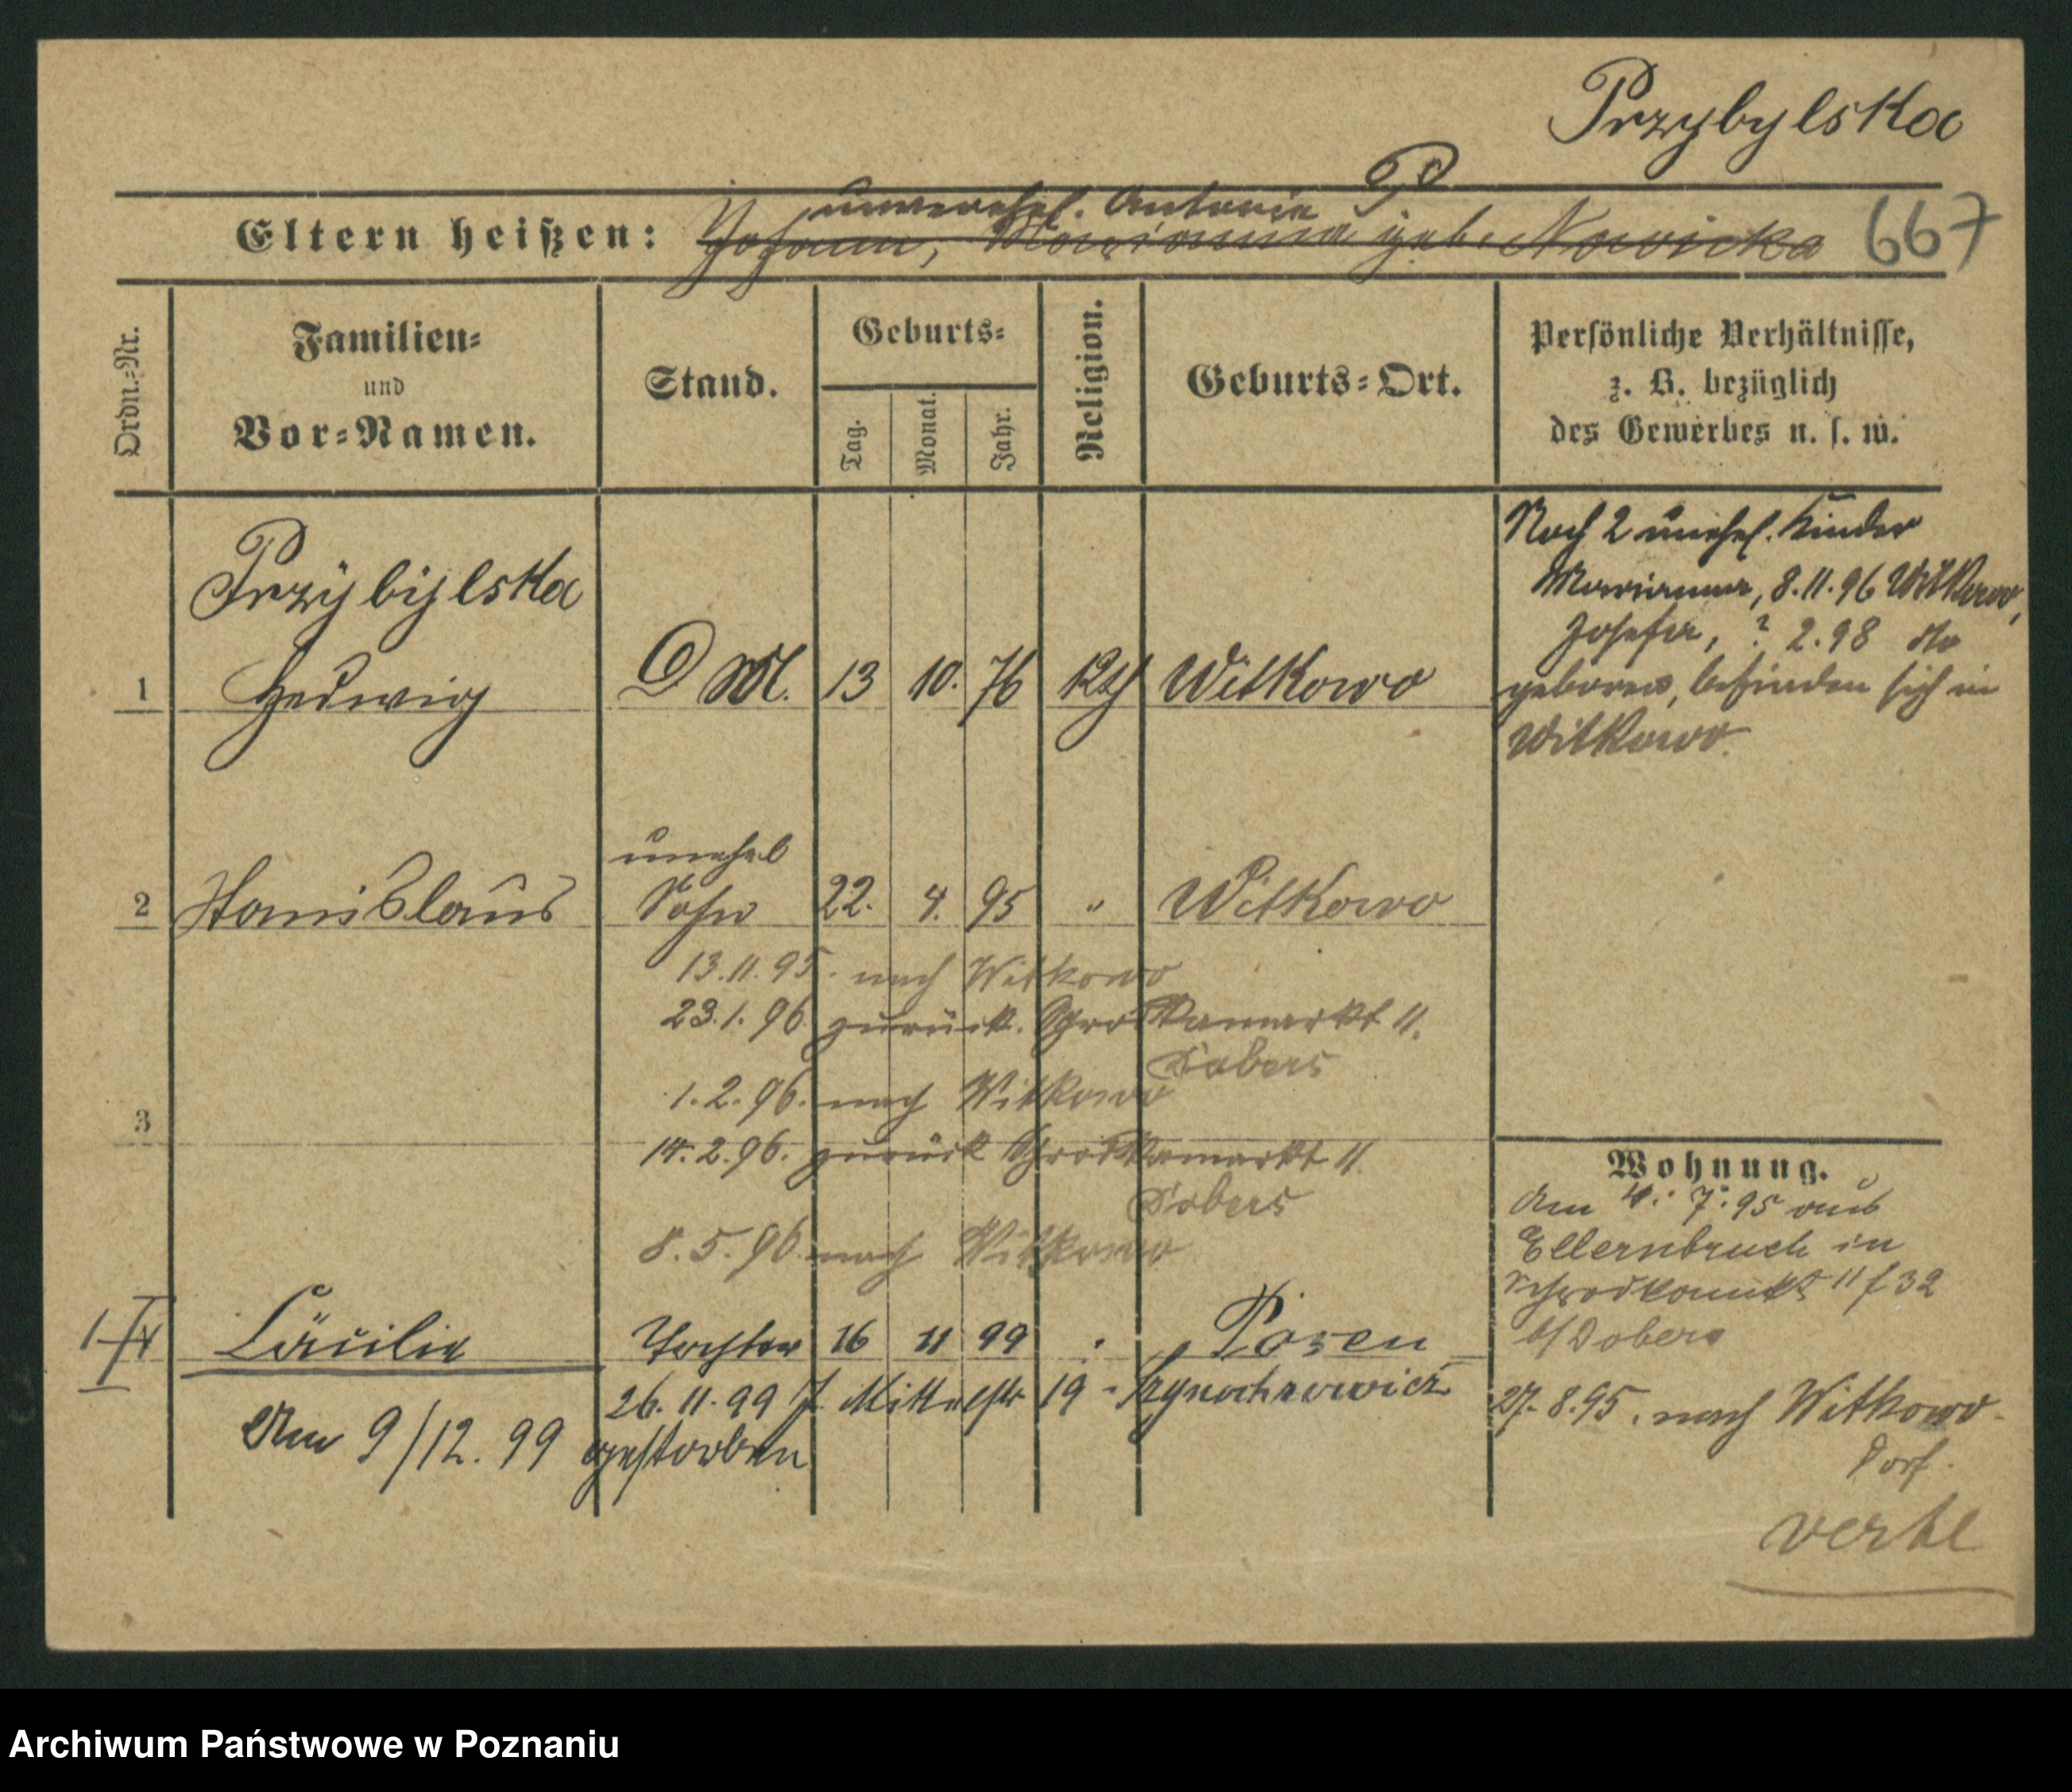 Przybylska
unverehel. Antonie P
Eltern heißen: Johann, Marianna geb. Nowicka 667
Ordn.=Nr.
Familien=
und
Vor=Namen.
Stand.
Geburts=
Tag.
Monat.
Jahr.
Religion.
Geburts=Ort.
Persönliche Verhältnisse,
z. B. bezüglich
des Gewerbes u. s. w.
Przybylska
1 Hedwig D M. 13 10. 76 kth Witkowo
Noch 2 unehel. Kinder
Marianna, 8.11.96 Witkowo,
Josefa, ? 2.98 do
geboren, befinden sich in
Witkowo.
unehel
2 Stanislaus Sohn 22. 4. 95 " Witkowo
13.11.95. nach Witkowo
23.1.96. zurück. Schrodkamarkt 11.
Dobers
1.2.96. nach Witkowo
3
14.2.96. zurück Schrodkamarkt 11.
Dobers
8.5.96. nach Witkowo
Cäcilie Tochter 16 11 99 Posen
26.11.99 Mittelstr 19
Am 9/12.99 gestorben
Wohnung.
Am 4. 7. 95 aus
Ellernbruch in
Schrodkamkt 11 f 32
b/Dobers
27.8.95. nach Witkowo
Dorf.
verte
Archiwum Państwowe w Poznaniu